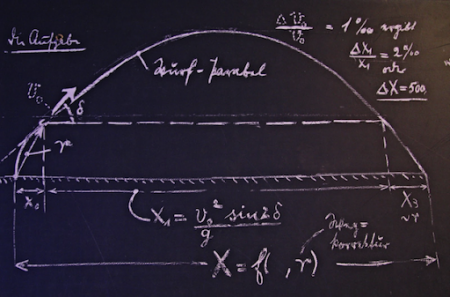 Die Aufgabe
Δv₀/v₀ = 1‰ ergibt
Δx₁/x₁ = 2‰
oder
ΔX = 500
Wurf-Parabel
v₀
δ
r
x₀
X₁ = v₀² sin 2δ / g
X₃
~r
korrektur
X = f( , r)